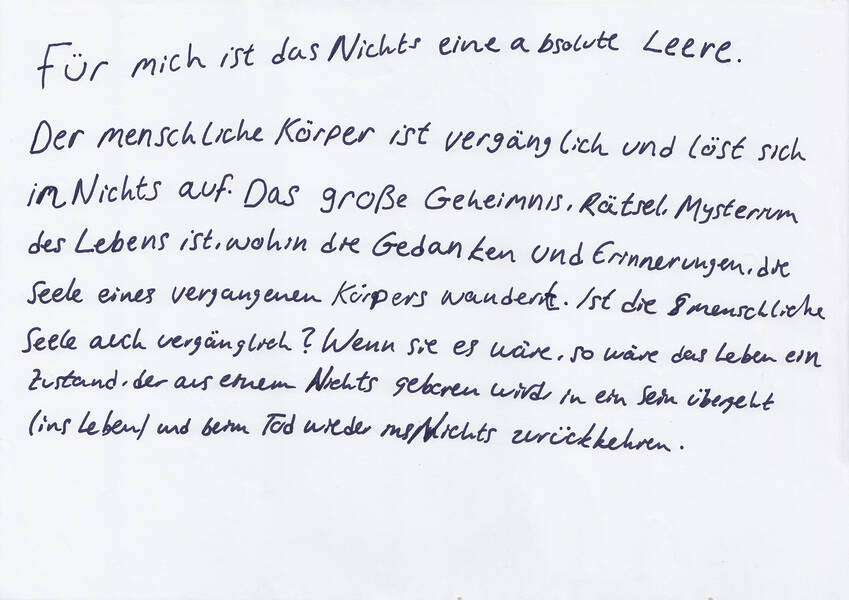 Für mich ist das Nichts eine absolute Leere.
Der menschliche Körper ist vergänglich und löst sich
im Nichts auf. Das große Geheimnis, Rätsel, Mysterium
des Lebens ist, wohin die Gedanken und Erinnerungen, die
Seele eines vergangenen Körpers wandert. Ist die menschliche
Seele auch vergänglich? Wenn sie es wäre, so wäre das Leben ein
Zustand, der aus einem Nichts geboren wird, in ein Sein übergeht
(ins Leben) und beim Tod wieder ins Nichts zurückkehren.